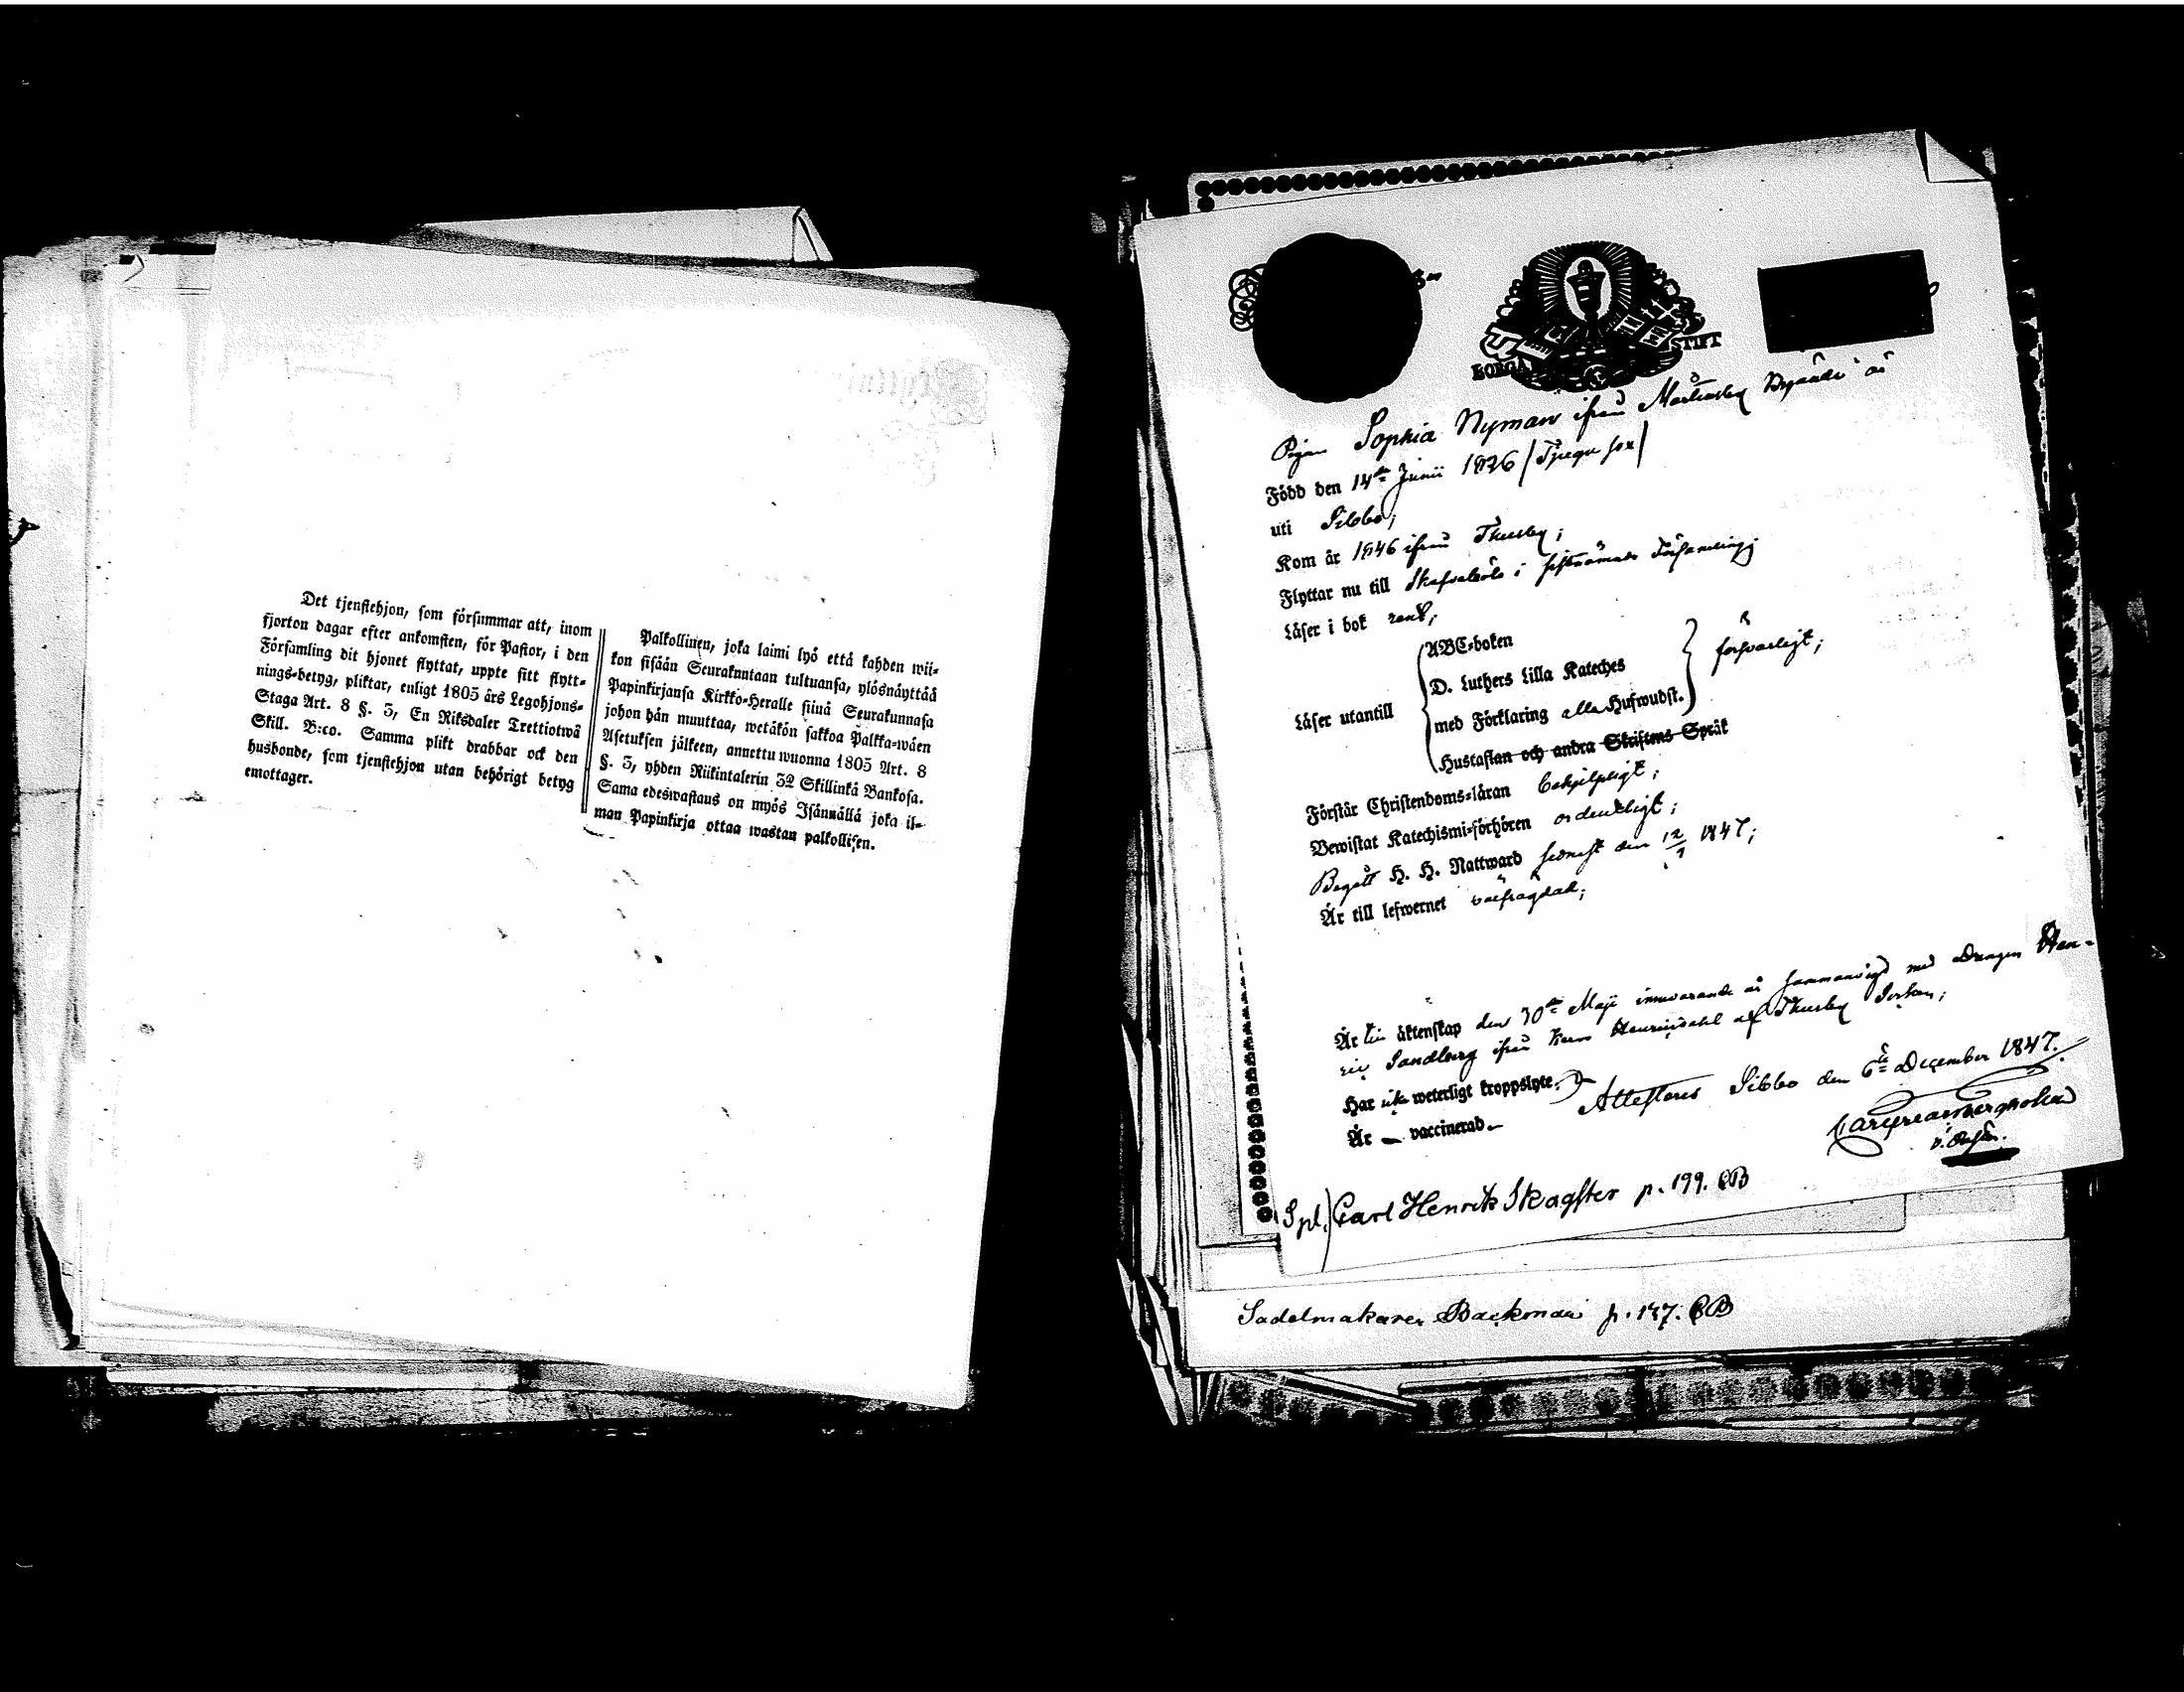 Det tjenstehjon, som försummar att, inom
fjorton dagar efter ankomsten, för Pastor, i den
Församling dit hjonet flyttat, uppte sitt flytt-
nings-betyg, pliktar, enligt 1805 års Legohjons-
Staga Art. 8 §. 3, En Riksdaler Trettiotwå
Skill. B:co. Samma plikt drabbar ock den
husbonde, som tjenstehjon utan behörigt betyg
emottager.
Palkollinen, joka laimi lyö että kahden wii-
kon sisään Seurakuntaan tultuansa, ylösnäyttää
Papinkirjansa Kirkko-Heralle siinä Seurakunnasa
johon hän muuttaa, wetäkön sakkoa Palkka-wäen
Asetuksen jälkeen, annettu wuonna 1805 Art. 8
§. 3, yhden Riikintalerin 32 Skillinkä Bankosa.
Sama edeswastaus on myös Isännällä joka il-
man Papinkirja ottaa wastan palkollisen.
BORGÅ STIFT
Pigan Sophia Nyman ifrån Mårtensby är
Född den 14de Junii 1826 / Tjugu sex /
uti Sibbo;
Kom år 1846 ifrån Thusby;
Flyttar nu till i sistnämnde Församling;
Läser i bok rent;
Läser utantill
ABC-boken
D. Luthers Lilla Kateches
med Förklaring alla Hufwudst.
Hustaflan och andra Skriftens Språk
försvarligt;
Förstår Christendoms-läran behjelpligt;
Bewistat Katechismi-förhören ordentligt;
Begått H. H. Nattward sednast den 12/9 1847;
År till lefwernet oäfragdad;
År i äktenskap den 30de Maji innevarande år sammanvigd med Drengen Hen-
ric Sandberg ifrån af Thusby Socken;
Har icke weterligt kroppslyte.
År — vaccinerad.
Attesteras Sibbo den 6te December 1847.
Spl.) Carl Henrik Skagster p. 199. CB
Sadelmakaren Backman p. 147. CB